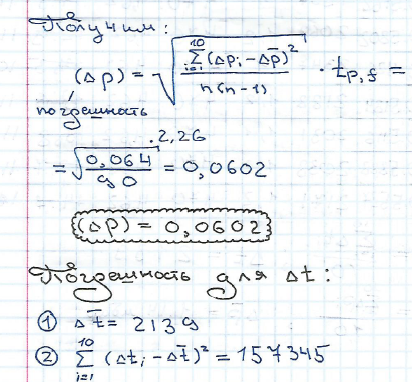 Получим:
(Δp) = √(∑_{i=1}^{10} (Δp_i - Δp̄)² / n(n-1)) · t_{p,f} =
погрешность
= √(0,064 / 90) · 2,26 = 0,0602
(Δp) = 0,0602
Погрешность для Δt:
① Δt̄ = 2139
② ∑_{i=1}^{10} (Δt_i - Δt̄)² = 157345